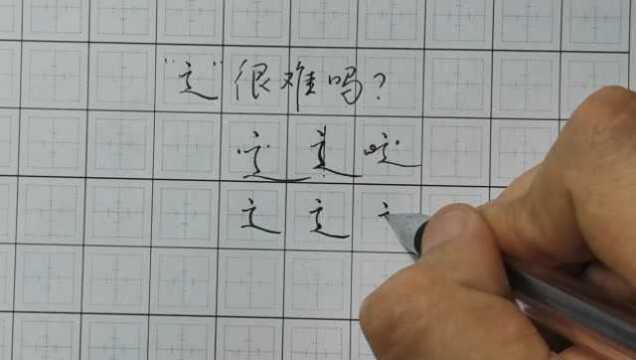 "辶"很难吗?
辶 辶 辶
辶 辶